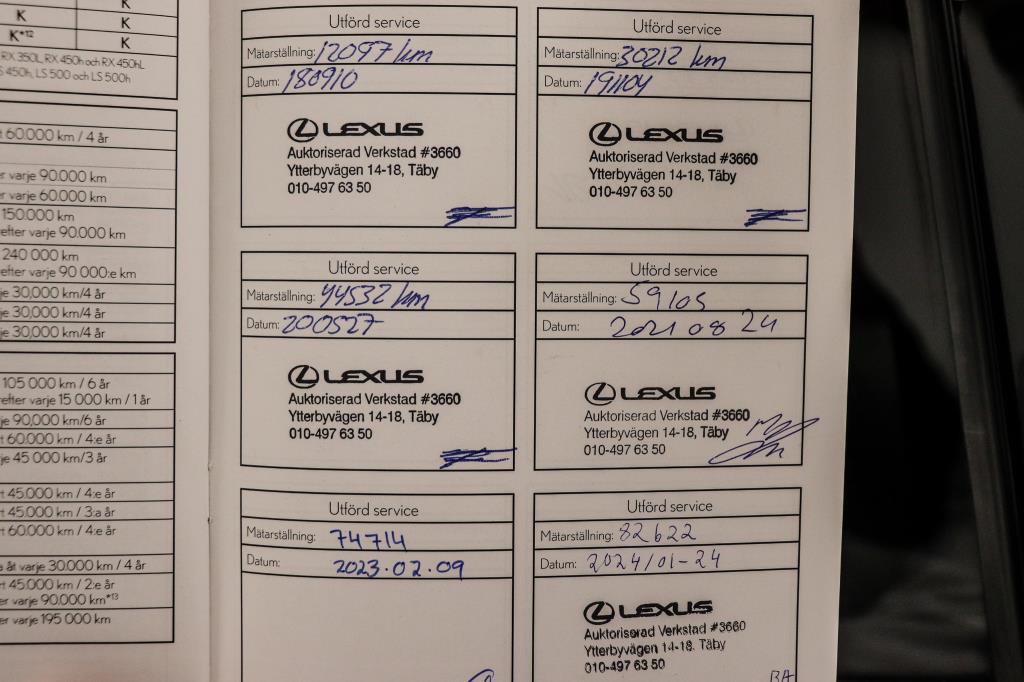 K
K
K*12
K
K
RX 350L, RX 450h och RX 450hL
S 450h, LS 500 och LS 500h
60.000 km / 4 år
varje 90.000 km
varje 60.000 km
150.000 km
refter varje 90.000 km
240 000 km
efter varje 90 000:e km
je 30,000 km/4 år
je 30,000 km/4 år
je 30,000 km/4 år
105 000 km / 6 år
refter varje 15 000 km / 1 år
je 90,000 km/6 år
60.000 km / 4:e år
je 45 000 km/3 år
45.000 km / 4:e år
45.000 km / 3:a år
60.000 km / 4:e år
a åt varje 30.000 km / 4 år
45.000 km / 2:e år
er varje 90.000 km*13
er varje 195 000 km
Utförd service
Mätarställning: 12097 km
Datum: 180910
LEXUS
Auktoriserad Verkstad #3660
Ytterbyvägen 14-18, Täby
010-497 63 50
Utförd service
Mätarställning: 30212 km
Datum: 191104
LEXUS
Auktoriserad Verkstad #3660
Ytterbyvägen 14-18, Täby
010-497 63 50
Utförd service
Mätarställning: 44532 km
Datum: 200527
LEXUS
Auktoriserad Verkstad #3660
Ytterbyvägen 14-18, Täby
010-497 63 50
Utförd service
Mätarställning: 59105
Datum: 2021 08 24
LEXUS
Auktoriserad Verkstad #3660
Ytterbyvägen 14-18, Täby
010-497 63 50
Utförd service
Mätarställning: 74714
Datum: 2023.02.09
Utförd service
Mätarställning: 82622
Datum: 2024/01-24
LEXUS
Auktoriserad Verkstad #3660
Ytterbyvägen 14-18. Täby
010-497 63 50
BA